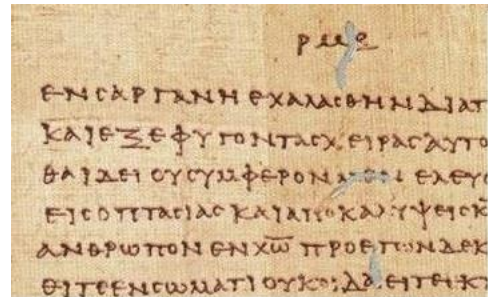 ρμε
ενϲαργανηεχαλαϲθηνδιατ
καιεξεφυγονταϲχειραϲαυτο
θαιδειουϲυμφερον ελευ
ειϲοπταϲιαϲκαιαποκαλυψειϲκ
ανθρωπονενχω̅προετωνδεκ
ειτεενϲωματιουκοιδαειτεεκ